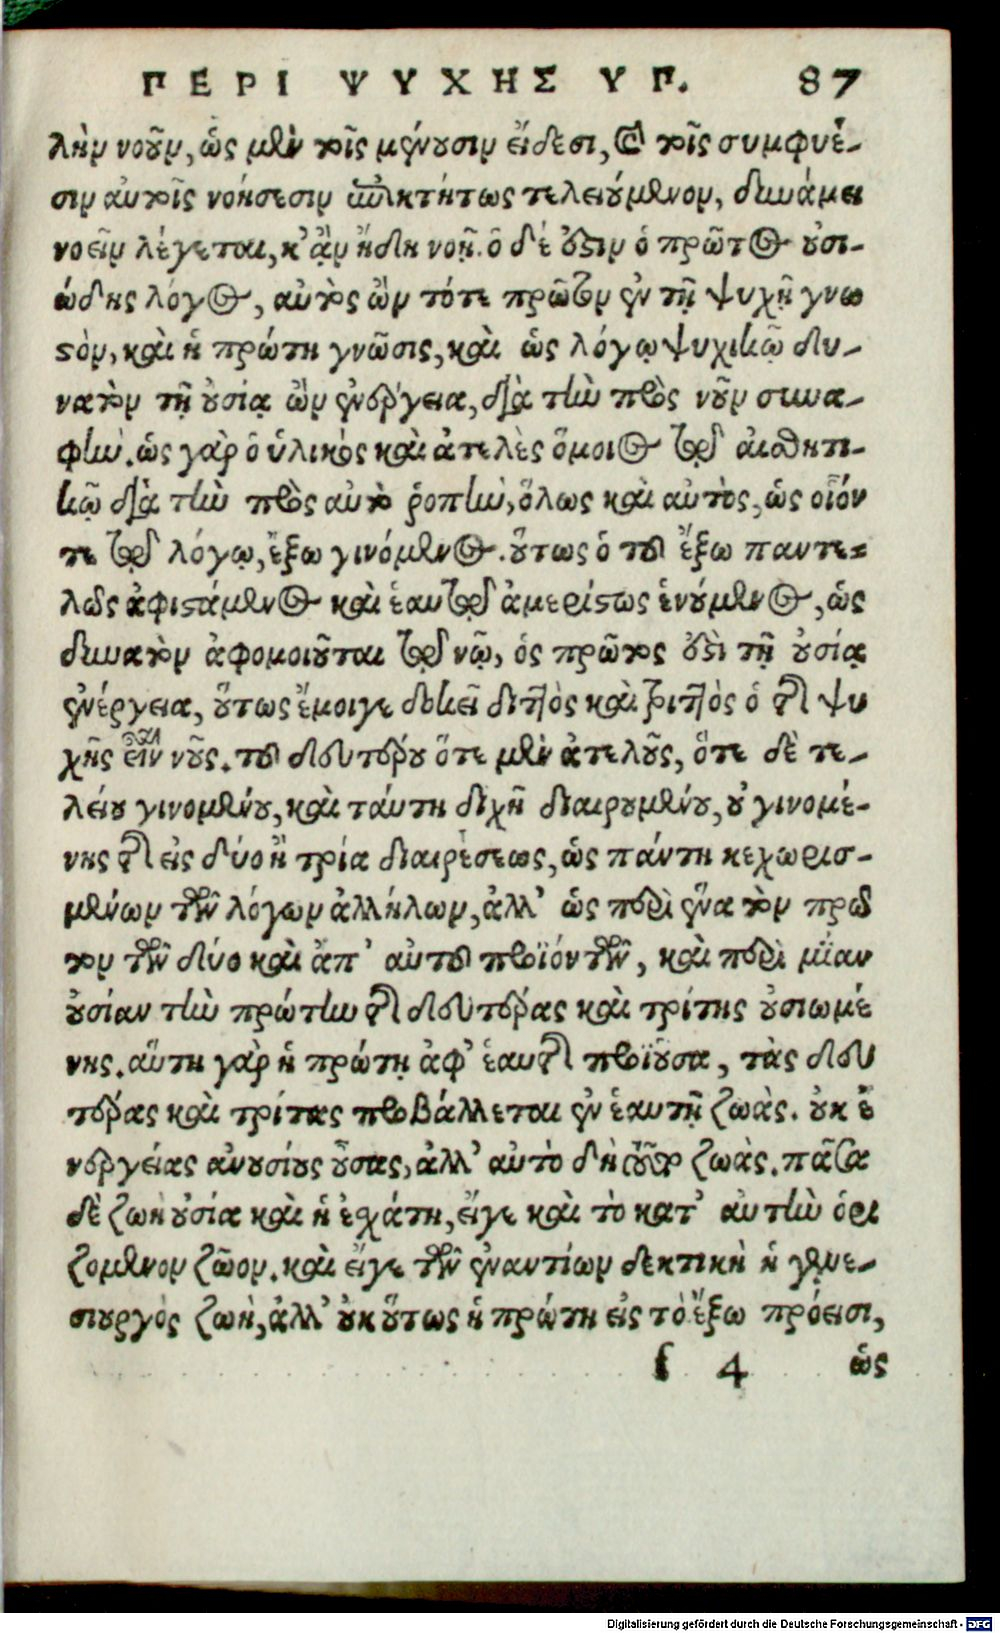 ΠΕΡΙ ΨΥΧΗΣ ΥΠ. 87
λὴν νοῦν, ὡς μὲν τοῖς μένουσιν εἴδεσι, καὶ τοῖς συμφυέ-
σιν αὐτοῖς νοήσεσιν ἐπικτήτως τελειούμενον, δυνάμει
νοεῖν λέγεται, κ' ἂν ἤδη νοῇ. ὃ δέ ἐστιν ὁ πρῶτος οὐσι-
ώδης λόγος, αὐτὸς ὢν τότε πρῶτον ἐν τῇ ψυχῇ γνω
στὸν, καὶ ἡ πρώτη γνῶσις, καὶ ὡς λόγῳ ψυχικῷ δυ-
νατὸν τῇ οὐσίᾳ ὢν ἐνέργεια, διὰ τὴν πρὸς νοῦν συνα-
φὴν. ὡς γὰρ ὁ ὑλικὸς καὶ ἀτελὴς ὅμοιος τῷ αἰσθητι-
κῷ διὰ τὴν πρὸς αὐτὸ ῥοπὴν, ὅλως καὶ αὐτὸς, ὡς οἷόν
τε τῷ λόγῳ, ἔξω γινόμενος. οὕτως ὁ τοῦ ἔξω παντε-
λῶς ἀφιστάμενος καὶ ἑαυτῷ ἀμερίστως ἑνούμενος, ὡς
δυνατὸν ἀφομοιοῦται τῷ νῷ, ὃς πρῶτος ἐστὶ τῇ οὐσίᾳ
ἐνέργεια, οὕτως ἔμοιγε δοκεῖ διττὸς καὶ τριττὸς ὁ τῆς ψυ
χῆς εἶναι νοῦς. τοῦ δευτέρου ὅτε μὲν ἀτελοῦς, ὅτε δὲ τε-
λείου γινομένου, καὶ ταύτη διχῆ διαιρουμένου, οὐ γινομέ-
νης τῆς εἰς δύο ἢ τρία διαιρέσεως, ὡς πάντη κεχωρισ-
μένων τῶν λόγων ἀλλήλων, ἀλλ' ὡς περὶ ἕνα τὸν πρῶ
τον τῶν δύο καὶ ἀπ' αὐτοῦ προϊόντων, καὶ περὶ μίαν
οὐσίαν τὴν πρώτην τῆς δευτέρας καὶ τρίτης οὐσιωμέ
νης. αὕτη γὰρ ἡ πρώτη ἀφ' ἑαυτῆς προϊοῦσα, τὰς δευ
τέρας καὶ τρίτας προβάλλεται ἐν ἑαυτῇ ζωὰς. οὐκ ἐ
νεργείας ἀνουσίους οὔσας, ἀλλ' αὐτὸ δὴ τοῦτο ζωὰς. πᾶσα
δὲ ζωὴ οὐσία καὶ ἡ ἐσχάτη, εἴγε καὶ τὸ κατ' αὐτὴν ὁρι
ζόμενον ζῶον. καὶ εἴγε τῶν ἐναντίων δεκτικὴ ἡ γενε-
σιουργὸς ζωὴ, ἀλλ' οὐκ οὕτως ἡ πρώτη εἰς τὸ ἔξω πρόεισι,
f 4 ὡς
Digitalisierung gefördert durch die Deutsche Forschungsgemeinschaft - DFG